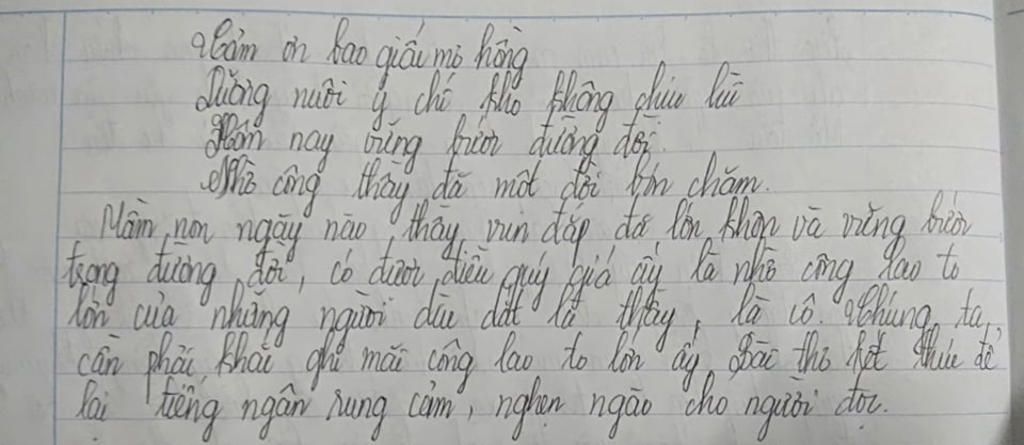 Cảm ơn bao giấu mồ hông
Dưỡng nuôi ý chí khó không chịu lùi
Hôm nay vững bước đường đời
Nhờ công thầy đã một đời bón chăm.
Mầm non ngày nào thầy vun đắp đã lớn khôn và vững bước
trong đường đời, có được điều quý giá ấy là nhờ công lao to
lớn của những người dìu dắt là thầy, là cô. Chúng ta
cần phải khắc ghi mãi công lao to lớn ấy. Bài thơ kết thúc để
lại tiếng ngân rung cảm, nghẹn ngào cho người đọc.